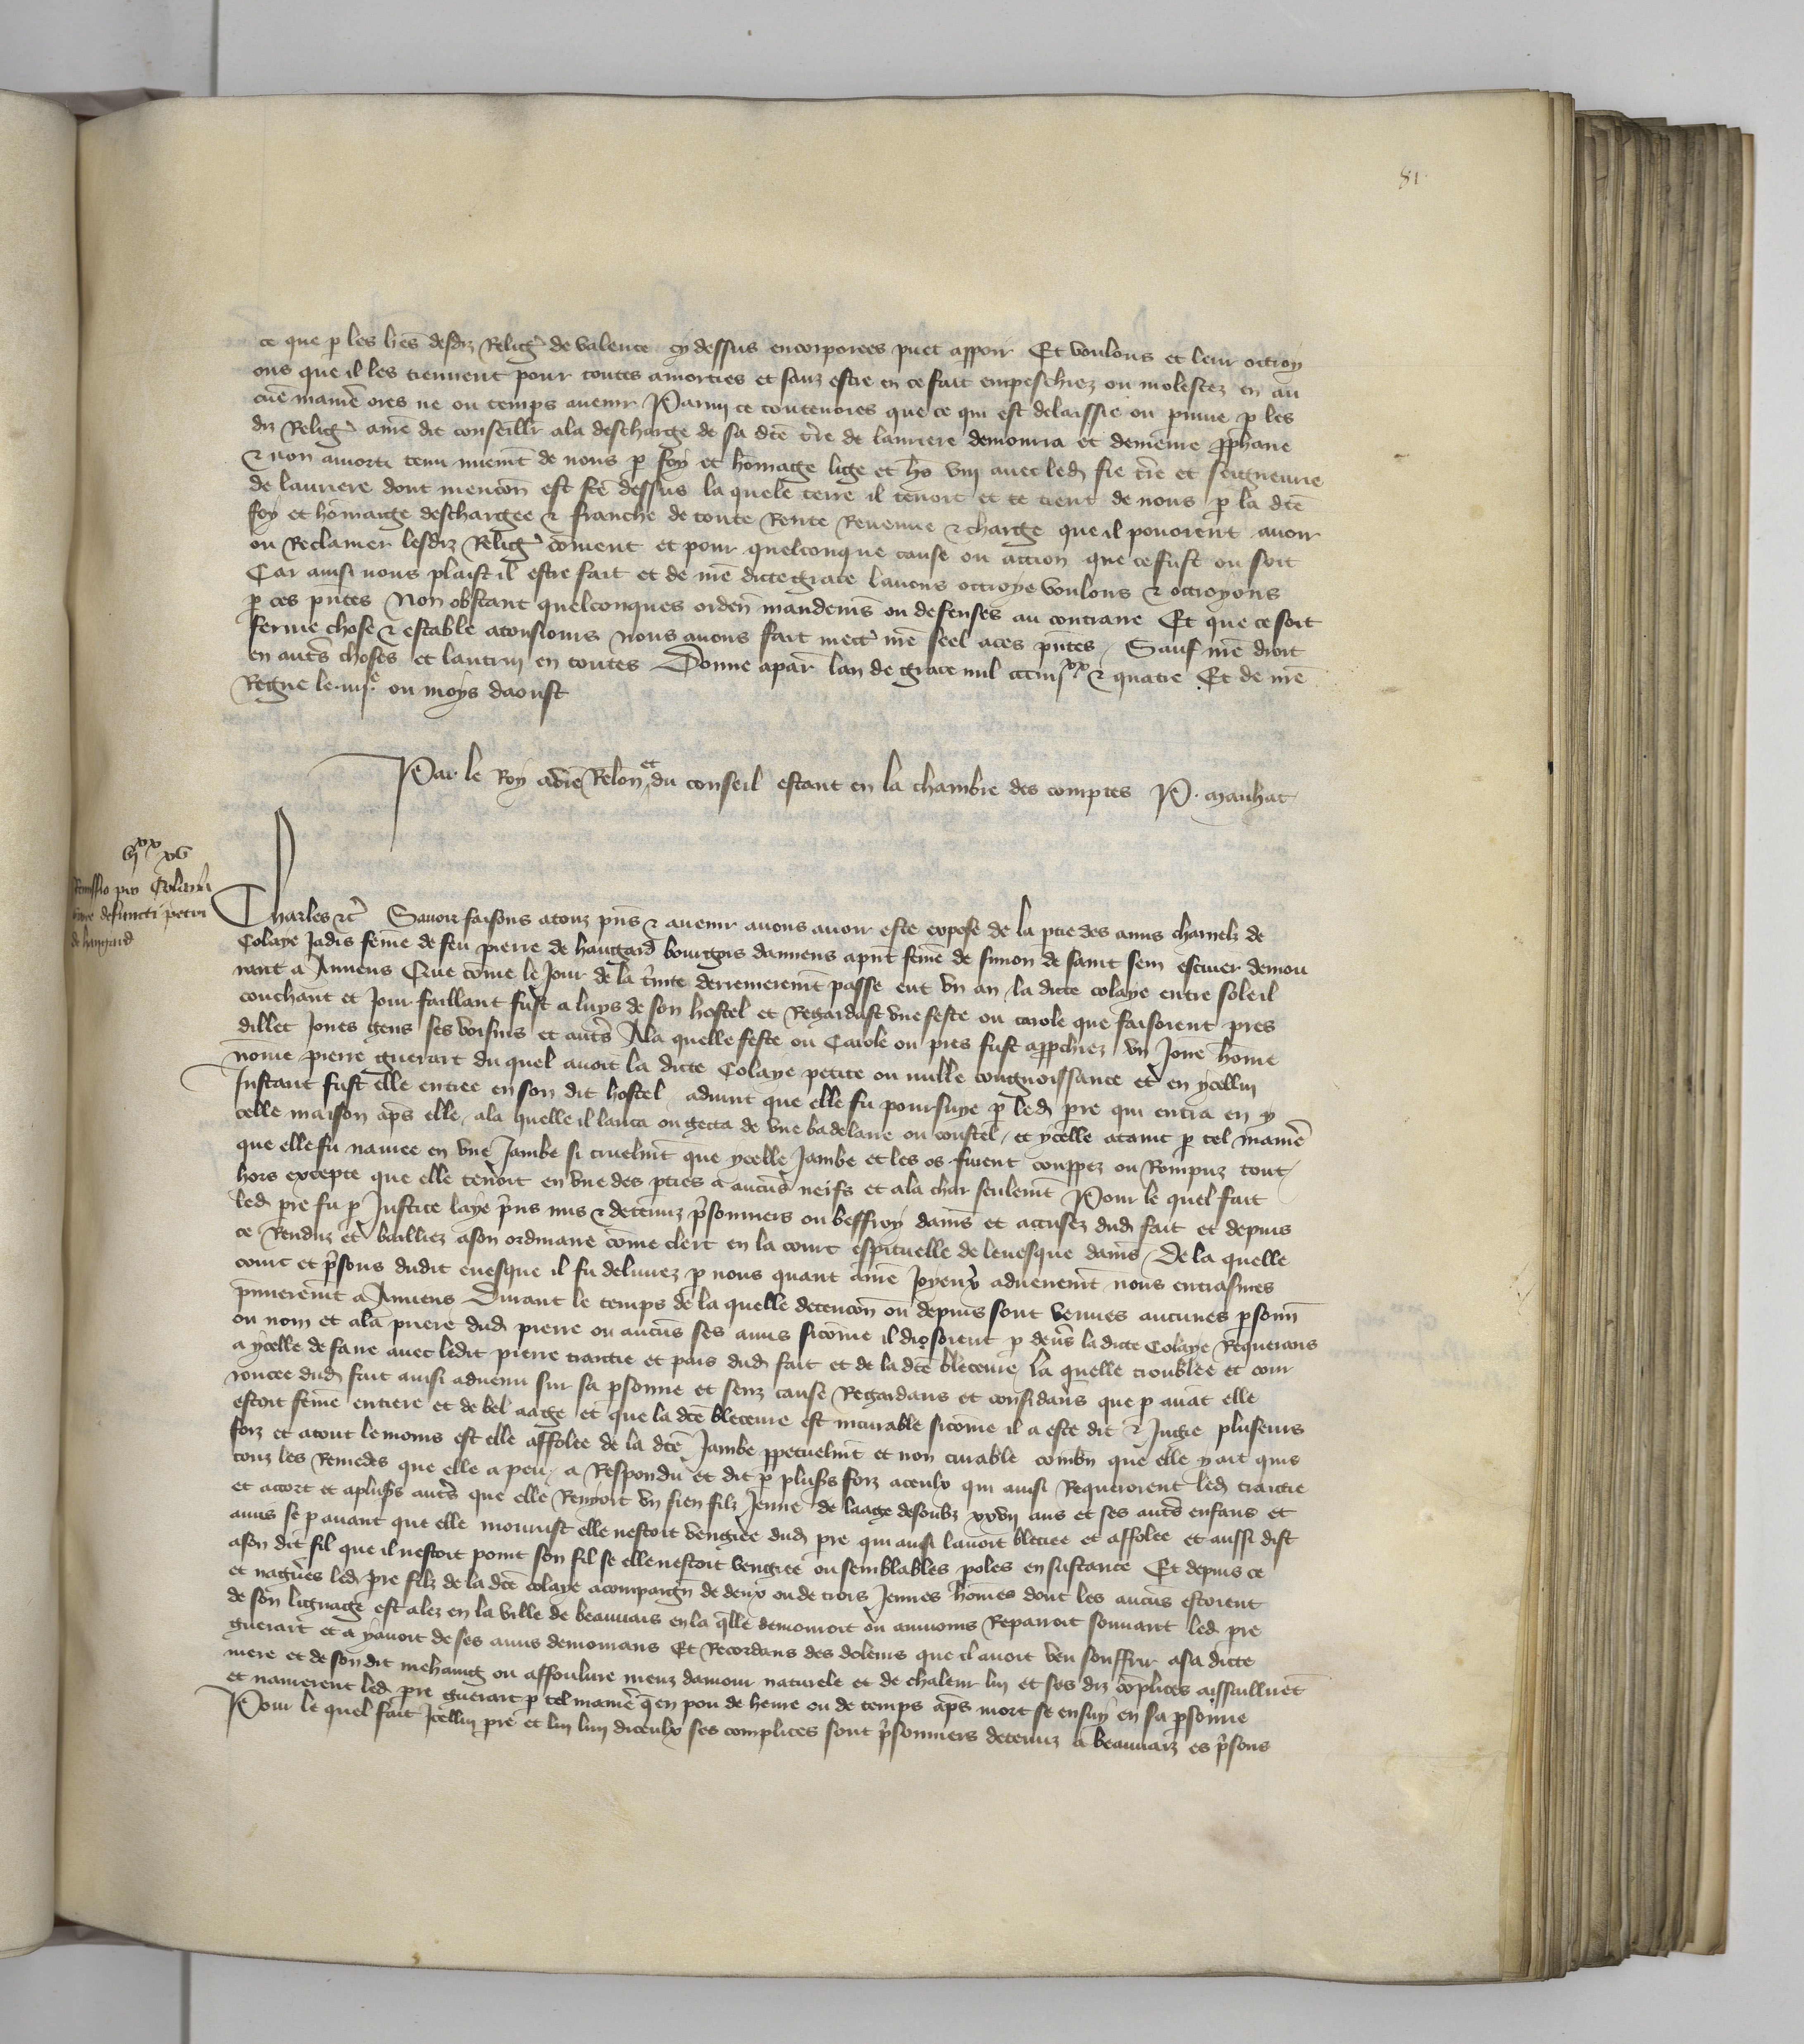 81
ce que p les lres desdiz Relig' de valence cy dessus encorporees puet apparoir Et voulons et leur octroy
ons que il les tiennent pour toutes amorties et sanz estre en ce fait empeschiez ou molestez en au
cune maniere ores ne ou temps avenir Parmi ce toutevoies que ce qui est delaissie ou p les
diz Relig' a nre dit conseiller a la descharge de sa dicte tre de lauriere demourra et demeure prophane
& non amorti tenu nuemt de nous p foy et homage lige et avec led fie tre et seigneurie
de lauriere dont mencon est fte dessus la quele terre il tenoit et tient de nous p la dte
foy et homaige deschargee & franche de toute Rente Revenue & charge que il povoient avoir
ou Reclamer lesdiz Relig' coment et pour quelconque cause ou action que ce fust ou soit
Car ainsi nous plaist il estre fait et de nre dicte grace lavons octroye voulons & octroyons
p ces pntes Non obstant quelconques orden mandemens ou defenses au contraire Et que ce soit
ferme chose & estable a tousiours nous avons fait mectr nre seel a ces pntes Sauf nre droit
en autres choses et lautrui en toutes Donne a par lan de grace mil ccc iiij xx & quatre Et de nre
Regne le iiij e ou moys daoust
Par le Roy a la Relon et du conseil estant en la chambre des comptes P. Manhac
vj xx xv
Remissio pro Colaya
uxore defuncti petri
de hangard
Charles &c Savoir faisons a touz pns & avenir a nous avoir este expose de la ptie des amis charnelz de
Colaye Jadis feme de feu pierre de haugard bourgois damiens apnt feme de simon de saint sem escuier demou
rant a Amiens Que come le Jour de la trinite derrenierement passe eut un an la dicte colaye entre soleil
couchant et Jour faillant fust a luys de son hostel et Regardast une feste ou carole que faisoient pres
dillec Jones gens ses voisins et autres A la quelle feste ou Carole ou pres fust approchiez un Jone home
nome pierre guerart du quel avoit la dicte Colaye petite ou nulle congnoissance et en ycellui
Instant fust elle entree en son dit hostel advint que elle fu poursuye p led pre qui entra en y
celle maison aps elle a la quelle il lanca ou gecta de une badelaire ou coustel et ycelle ataint p tel maniere
que elle fu navree en une Jambe si cruelmt que ycelle Jambe et les os furent couppez ou Rompuz tout
hors excepte que elle tenoit en une des pties a aucuns neifs et a la char seulemt Pour le quel fait
led pre fu p Justice laye prins mis & detenuz prisonniers ou beffroy damiens et accusez dud fait et depuis
ce Renduz et bailliez a son ordinaire come clerc en la court espituelle de levesque damiens De la quelle
court et prisons dudit evesque il fu delivrez p nous quant a nre Joyeux advenemt nous entrasmes
pmierement a Amiens Durant le temps de la quelle detencon ou depuis sont venues aucunes psonn
ou nom et a la priere dud pierre ou aucuns ses amis sicome il disoient p devers la dicte Colaye Requerans
a ycelle de faire avec ledit pierre traictie et pais dud fait et de la dte bleceure la quelle troublee et cour
roucee dud fait ainsi advenu sur sa psonne et senz cause Regardans et considans que p avant elle
estoit feme entiere et de bel aage et que la dte bleceure est incurable sicome il a este dit & Jugie pluseurs
foiz et a tout le moins est elle affolee de la dte Jambe ppetuelmt et non curable combn que elle y ait quis
touz les Remedes que elle a peu a Respondu et dit p plusrs foiz a ceulx qui ainsi Requeroient led traictie
et accort et a plusrs autres que elle Renyoit un sien filz Jeune de laage desoubz xxvij ans et ses autres enfans et
amis se p avant que elle mourust elle nestoit vengiee dud pre qui ainsi lavoit bleciee et affolee et aussi dist
a son dit fil que il nestoit point son fil se elle nestoit vengiee ou semblables poles en sustance Et depuis ce
et nagres led pre filz de la dte colaye acompaign de deux ou de trois Jeunes homes dont les aucuns estoient
de son lignage est alez en la ville de beauvais en la qlle demouroit ou au moins Repairoit souvant led pre
guerart et a y avoit de ses amis demourans Et Recordans des doleurs que il avoit veu souffrir a sa dicte
mere et de son dit mehaing ou affoulure meuz damour naturele et de chaleur lui et ses diz coplices assaillirent
et navrerent led pre guerart p tel maniere qen pou de heure ou de temps aps mort se ensuy en sa psonne
Pour le quel fait Icellui pre et lui lun diceulx ses complices sont prisonniers detenuz a beauvaiz es prisons